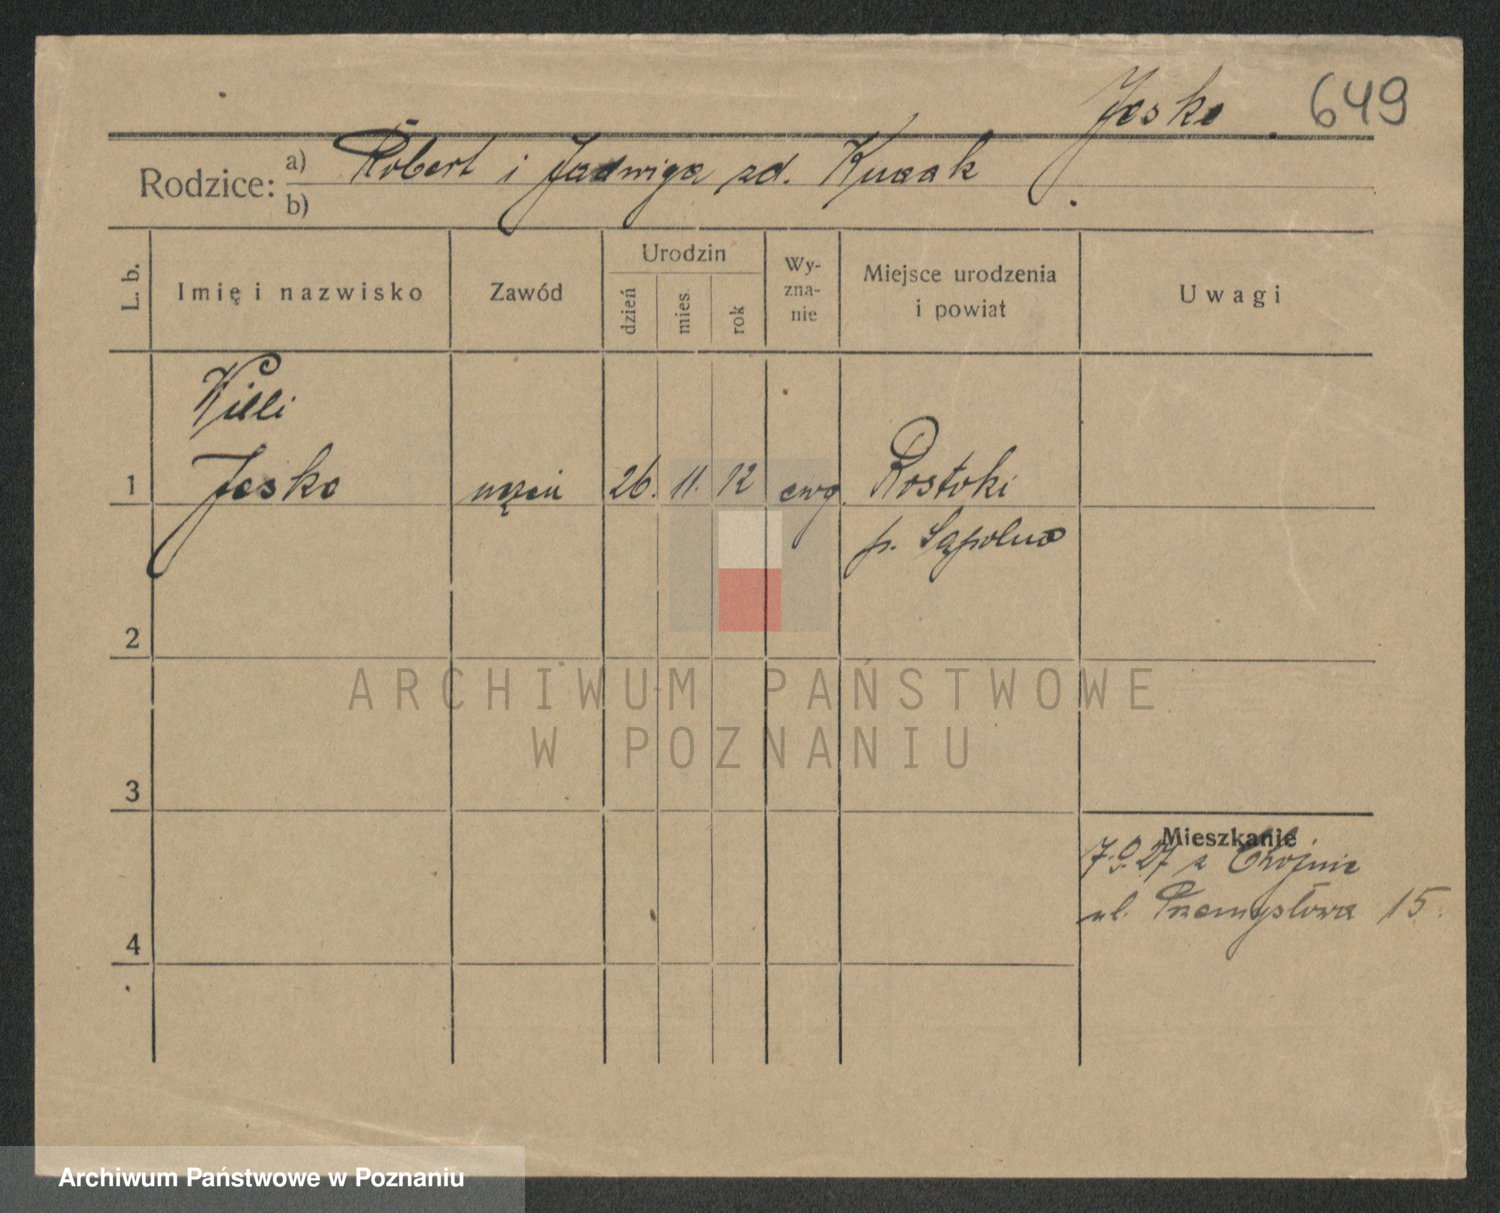 Jeske 649
Rodzice: a) Robert i Jadwiga zd. Kusak
b)
L. b.
Imię i nazwisko
Zawód
Urodzin
dzień
mies.
rok
Wy-
zna-
nie
Miejsce urodzenia
i powiat
Uwagi
Willi
1 Jeske uczeń 26. 11. 12 ewg. Rostoki
p. Sąpolno
2
ARCHIWUM PAŃSTWOWE
W POZNANIU
3
Mieszkanie
z Chojnic
ul. Przemysłowa 15
4
Archiwum Państwowe w Poznaniu